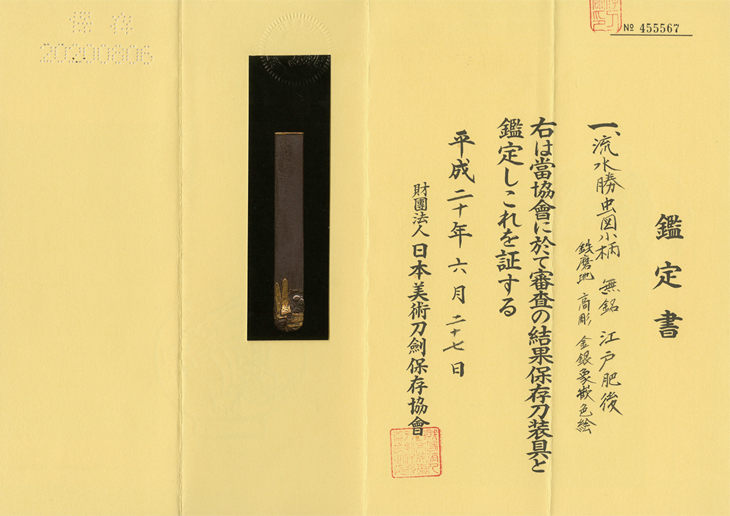 № 455567
鑑定書
一、流水勝虫図小柄 無銘 江戸肥後
鉄磨地 高彫 金銀象嵌色絵
右は當協會に於て審査の結果保存刀装具と
鑑定しこれを証する
平成二十年六月二十七日
財團法人 日本美術刀劍保存協會
保存
20200806